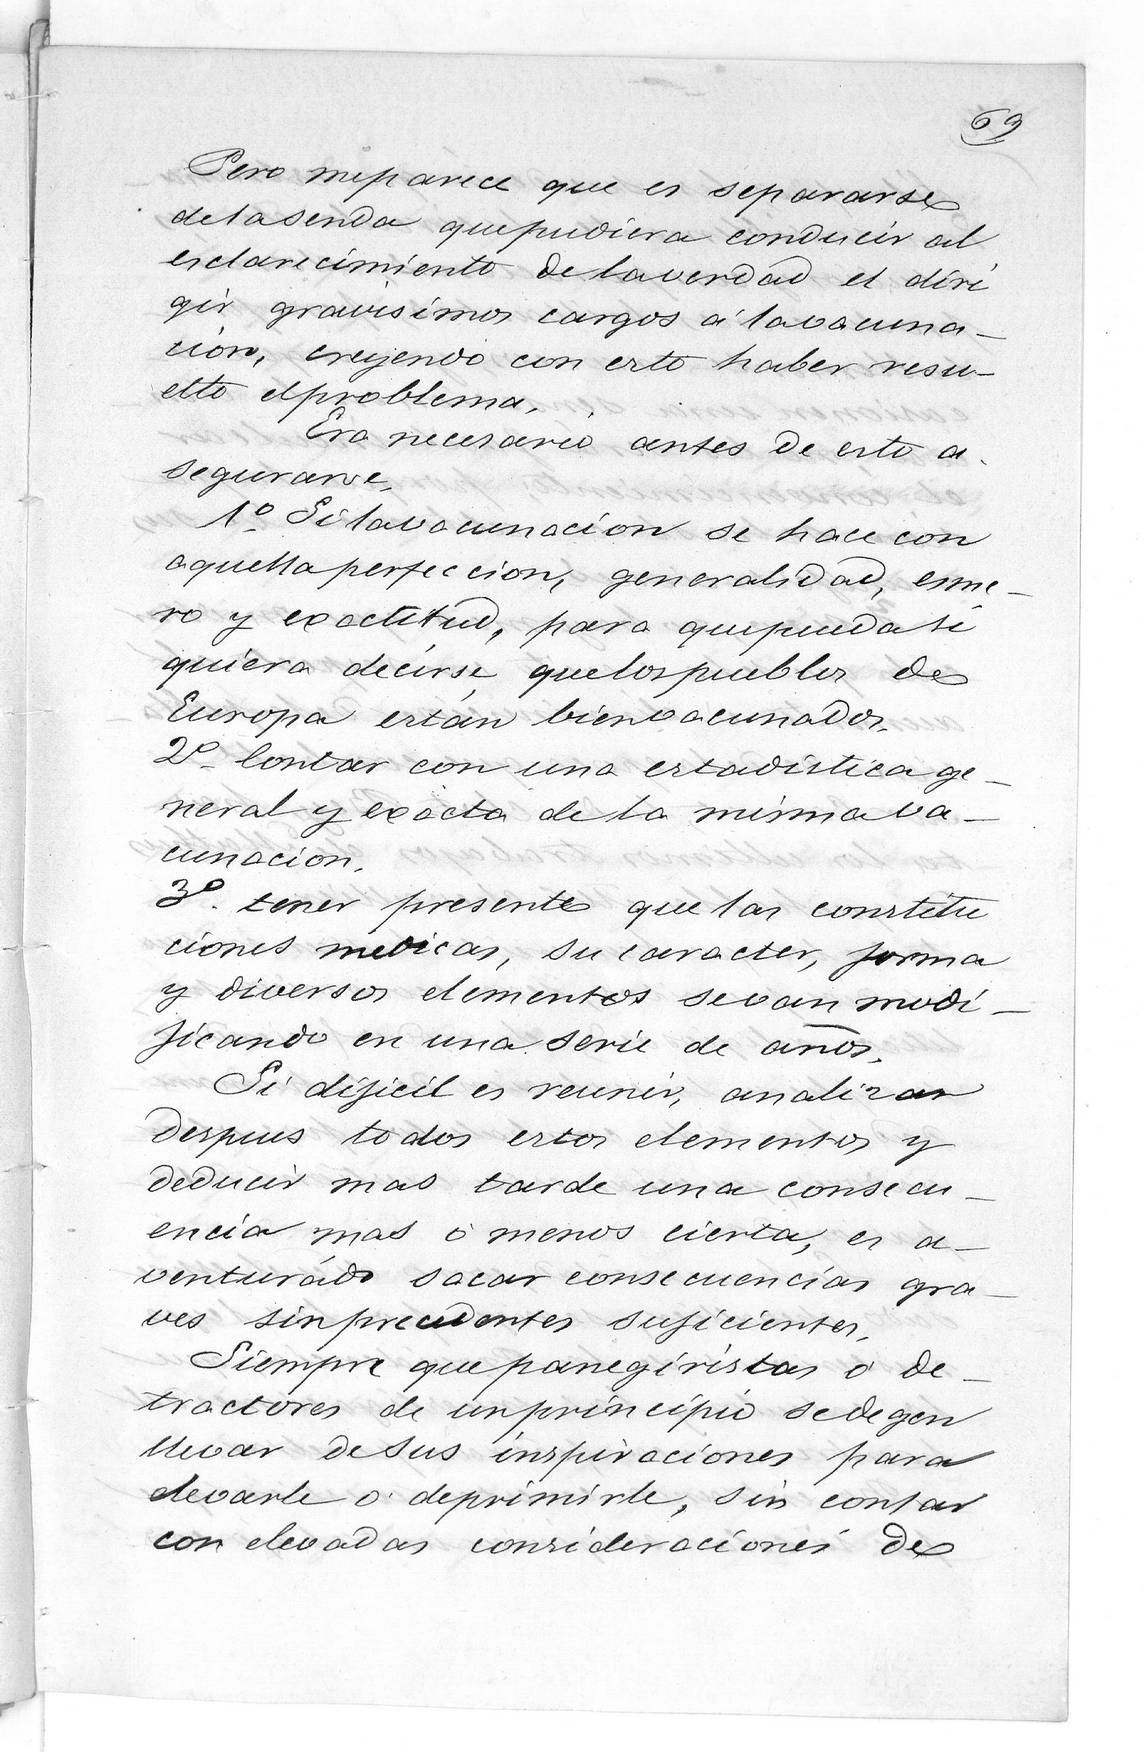 69
Pero me parece que es separarse
de la senda que pudiera conducir al
esclarecimiento de la verdad el diri
gir gravisimos cargos á la vacuna_
ción, creyendo con esto haber resu_
elto el problema.
Era necesario antes de esto a_
segurarse.
1º Si la vacunación se hace con
aquella perfeccion, generalidad, esme_
ro y exactitud, para que pueda si
quiera decirse que los pueblos de
Europa están bien vacunados.
2º Contar con una estadistica ge_
neral y exacta de la misma va_
cunacion.
3º. tener presente que las constitu
ciones medicas, su caracter, forma
y diversos elementos se van modi_
ficando en una serie de años.
Si dificil es reunir, analizar
despues todos estos elementos y
deducir mas tarde una consecu_
encia mas ó menos cierta, es a_
venturádo sacar consecuencias gra_
ves sin precedentes suficientes.
Siempre que panegiristas ó de_
tractores de un principio se degen
llevar de sus inspiraciones para
elevarle ó deprimirle, sin contar
con elevadas consideraciones de